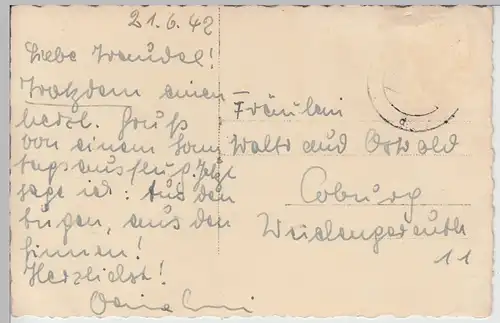 21.6.42
Liebe Traudel!
Trotzdem einen
herzl. Gruß
von einem Sonn
tagsausflug. Jetzt
sage ich: Aus den
Augen, aus den
Sinnen!
Herzlichst!
Fräulein
Waltraud Oswald
Coburg
Weichengereuth
11